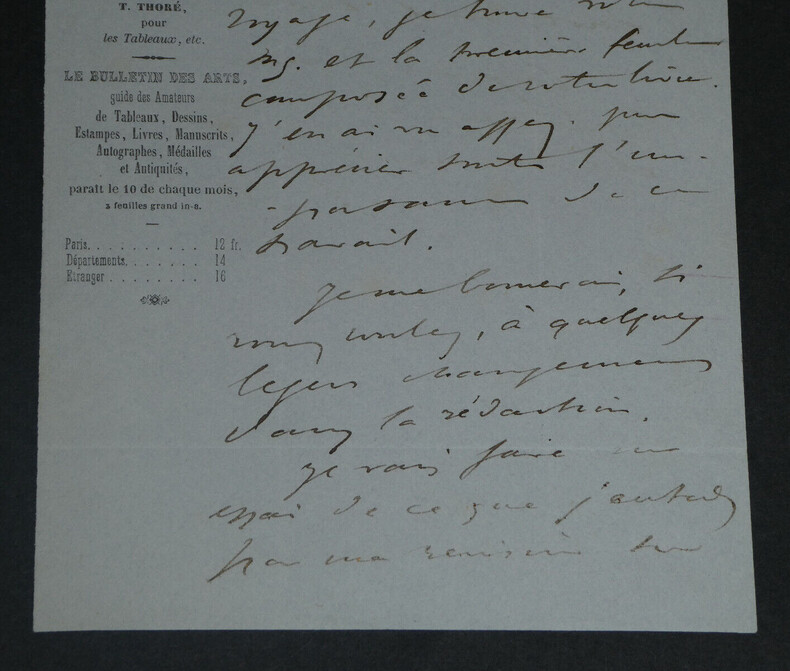 T. THORÉ,
pour
les Tableaux, etc.
LE BULLETIN DES ARTS,
guide des Amateurs
de Tableaux, Dessins,
Estampes, Livres, Manuscrits,
Autographes, Médailles
et Antiquités,
paraît le 10 de chaque mois,
2 feuilles grand in-8.
Paris. . . . . . . . . . . 12 fr.
Départements. . . . . . . 14
Etranger . . . . . . . . . 16
voyage, je trouve
et la première feuille
composée de votre livre.
J'en ai vu assez pour
apprécier toute l'im-
-portance de ce
travail.
Je me bornerai, si
vous voulez, à quelques
légers changements
dans la rédaction.
Je vais faire un
essai de ce que j'entends
par ma révision